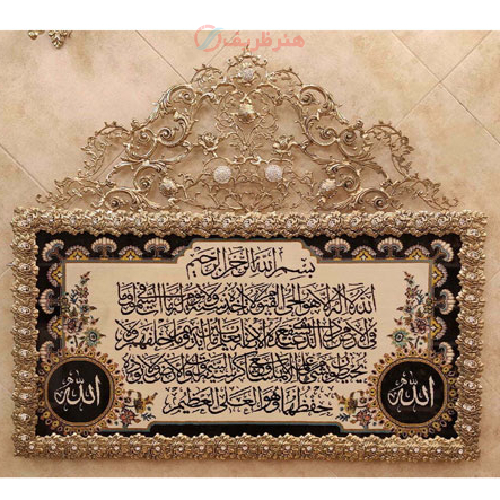 هنر ظریف
بسم الله الرحمن الرحيم
الله لا اله الا هو الحى القيوم لا تاخذه سنة ولا نوم له ما فى السموات وما
فى الارض من ذا الذى يشفع عنده الا باذنه يعلم ما بين ايديهم وما خلفهم ولا
يحيطون بشىء من علمه الا بما شاء وسع كرسيه السموات والارض ولا يؤده
حفظهما وهو العلى العظيم
الله
الله